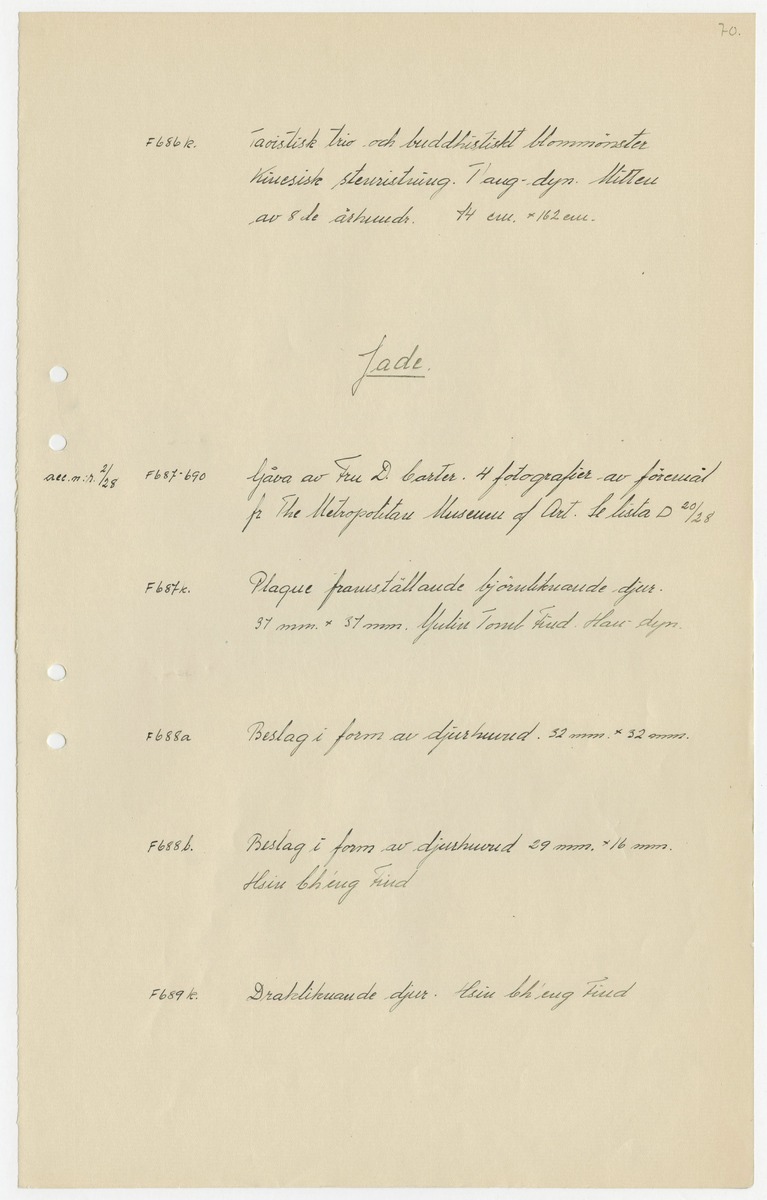 70.
F686k. Taoistisk trio och buddhistiskt blommönster
Kinesisk stenristning. T'ang-dyn. Mitten
av 8de århundr. 74 cm. × 162 cm.
Jade.
acc.n:r. 2/28 F687-690 Gåva av Fru D. Carter. 4 fotografier av föremål
fr The Metropolitan Museum of Art. Se lista D 20/28
F687k. Plaque framställande björnliknande djur.
37 mm. × 37 mm. Yulin Tomb Find. Han-dyn.
F688a Beslag i form av djurhuvud. 32 mm. × 32 mm.
F688b. Beslag i form av djurhuvud 29 mm. × 16 mm.
Hsin Ch'eng Find
F689k. Drakliknande djur. Hsin Ch'eng Find